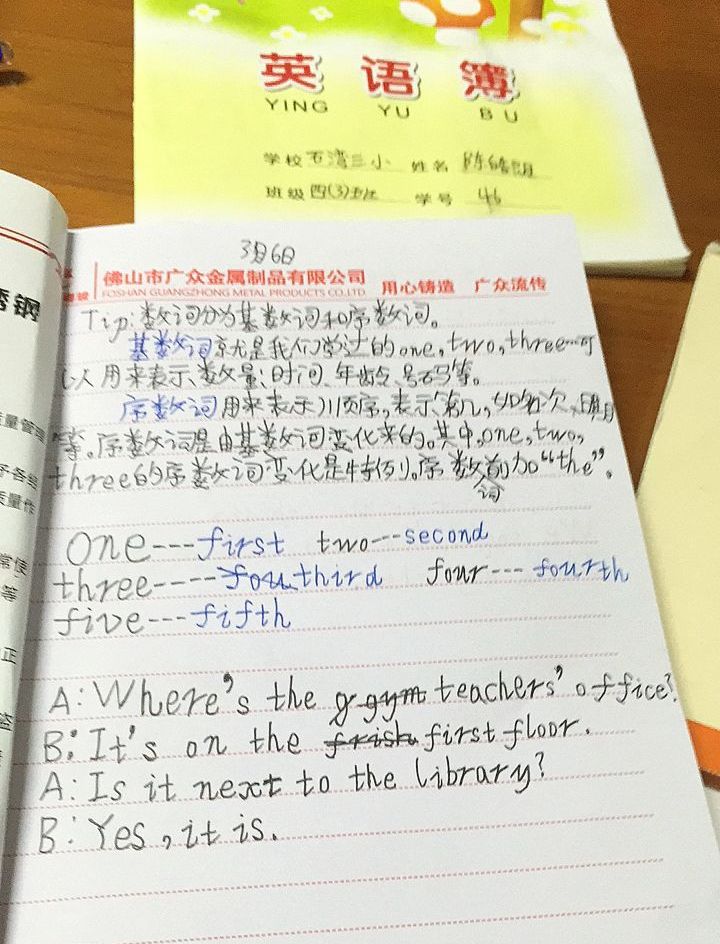 英语簿
YING YU BU
学校 石湾三小 姓名
班级 四(3)班 学号 46
3月6日
佛山市广众金属制品有限公司
FOSHAN GUANGZHONG METAL PRODUCTS CO.,LTD
用心铸造 广众流传
Tip:数词分为基数词和序数词。
基数词就是我们学过的one,two,three…可
以用来表示数量、时间、年龄、号码等。
序数词用来表示顺序,表示第几,如名次、日期
等。序数词是由基数词变化来的。其中,one,two,
three的序数词变化是特例。序数词前加“the”。
one---first two---second
three----third four---fourth
five---fifth
A:Where's the teachers' office?
B:It's on the first floor.
A:Is it next to the library?
B:Yes,it is.
钢
质量管理
子各
质量作
常使
等
正